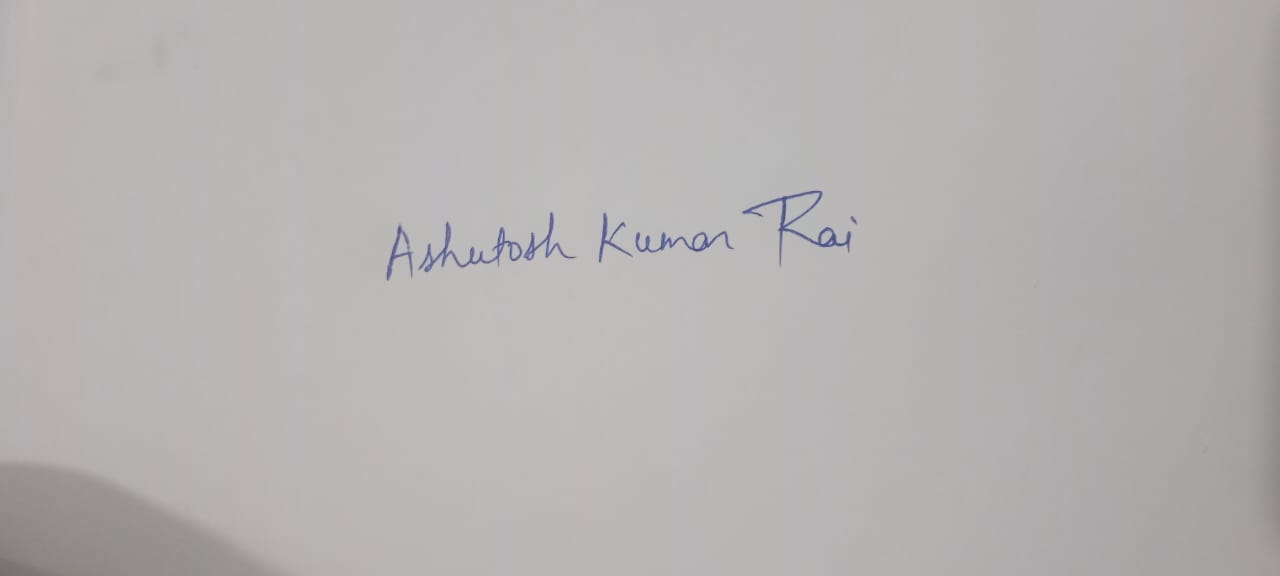 Ashutosh Kumar Rai